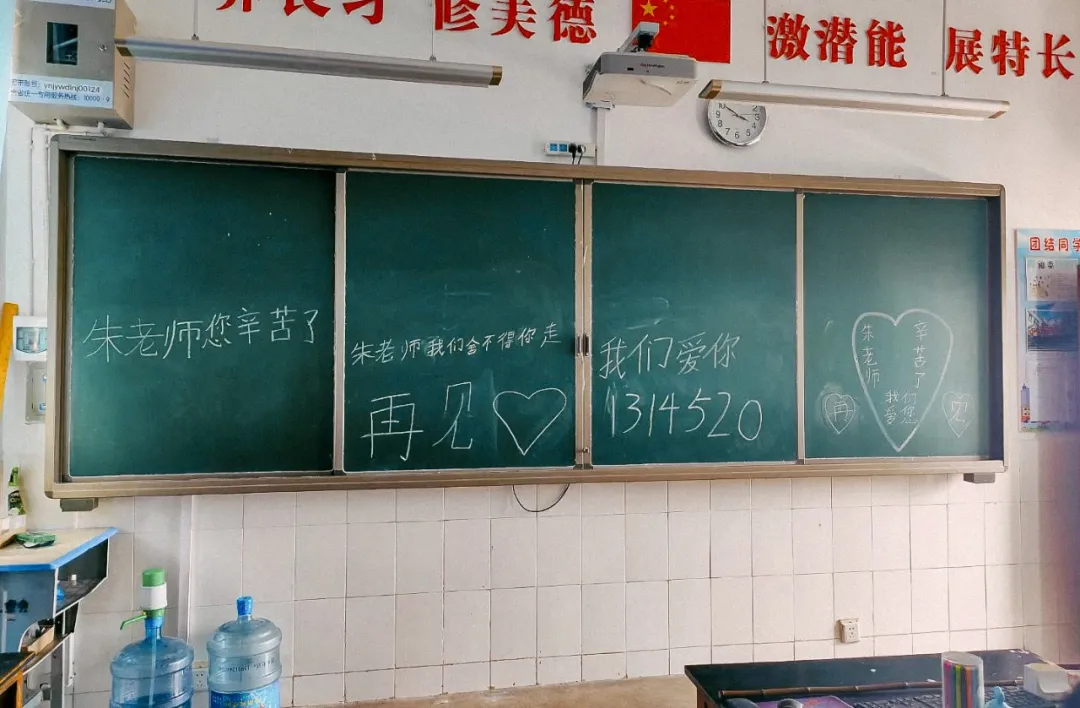 养良习 修美德
激潜能 展特长
ynjywdlnj00124
朱老师您辛苦了
朱老师我们舍不得你走
再见
我们爱你
1314520
朱老师
辛苦了
我们
爱您
再
见
团结同学